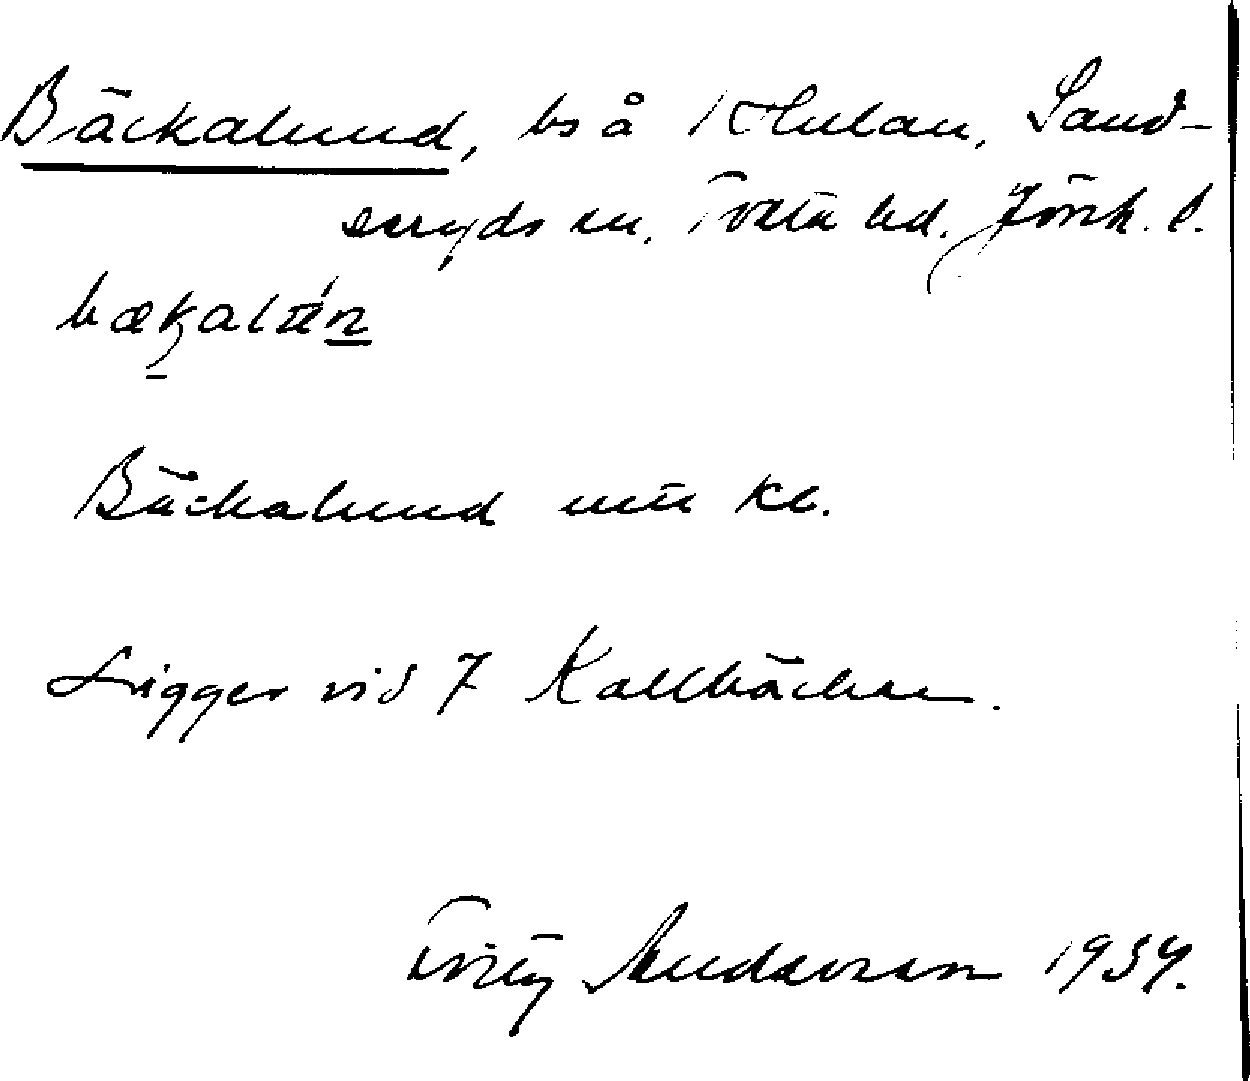 Bäckalund, bs å Kthulan, Sand-
seryds sn. Tveta hd. Jönk. l.
bækalún
Bäckalund mtn kl.
Ligger vid 7 Kallbäcken.
Fritz Andersson 1934.